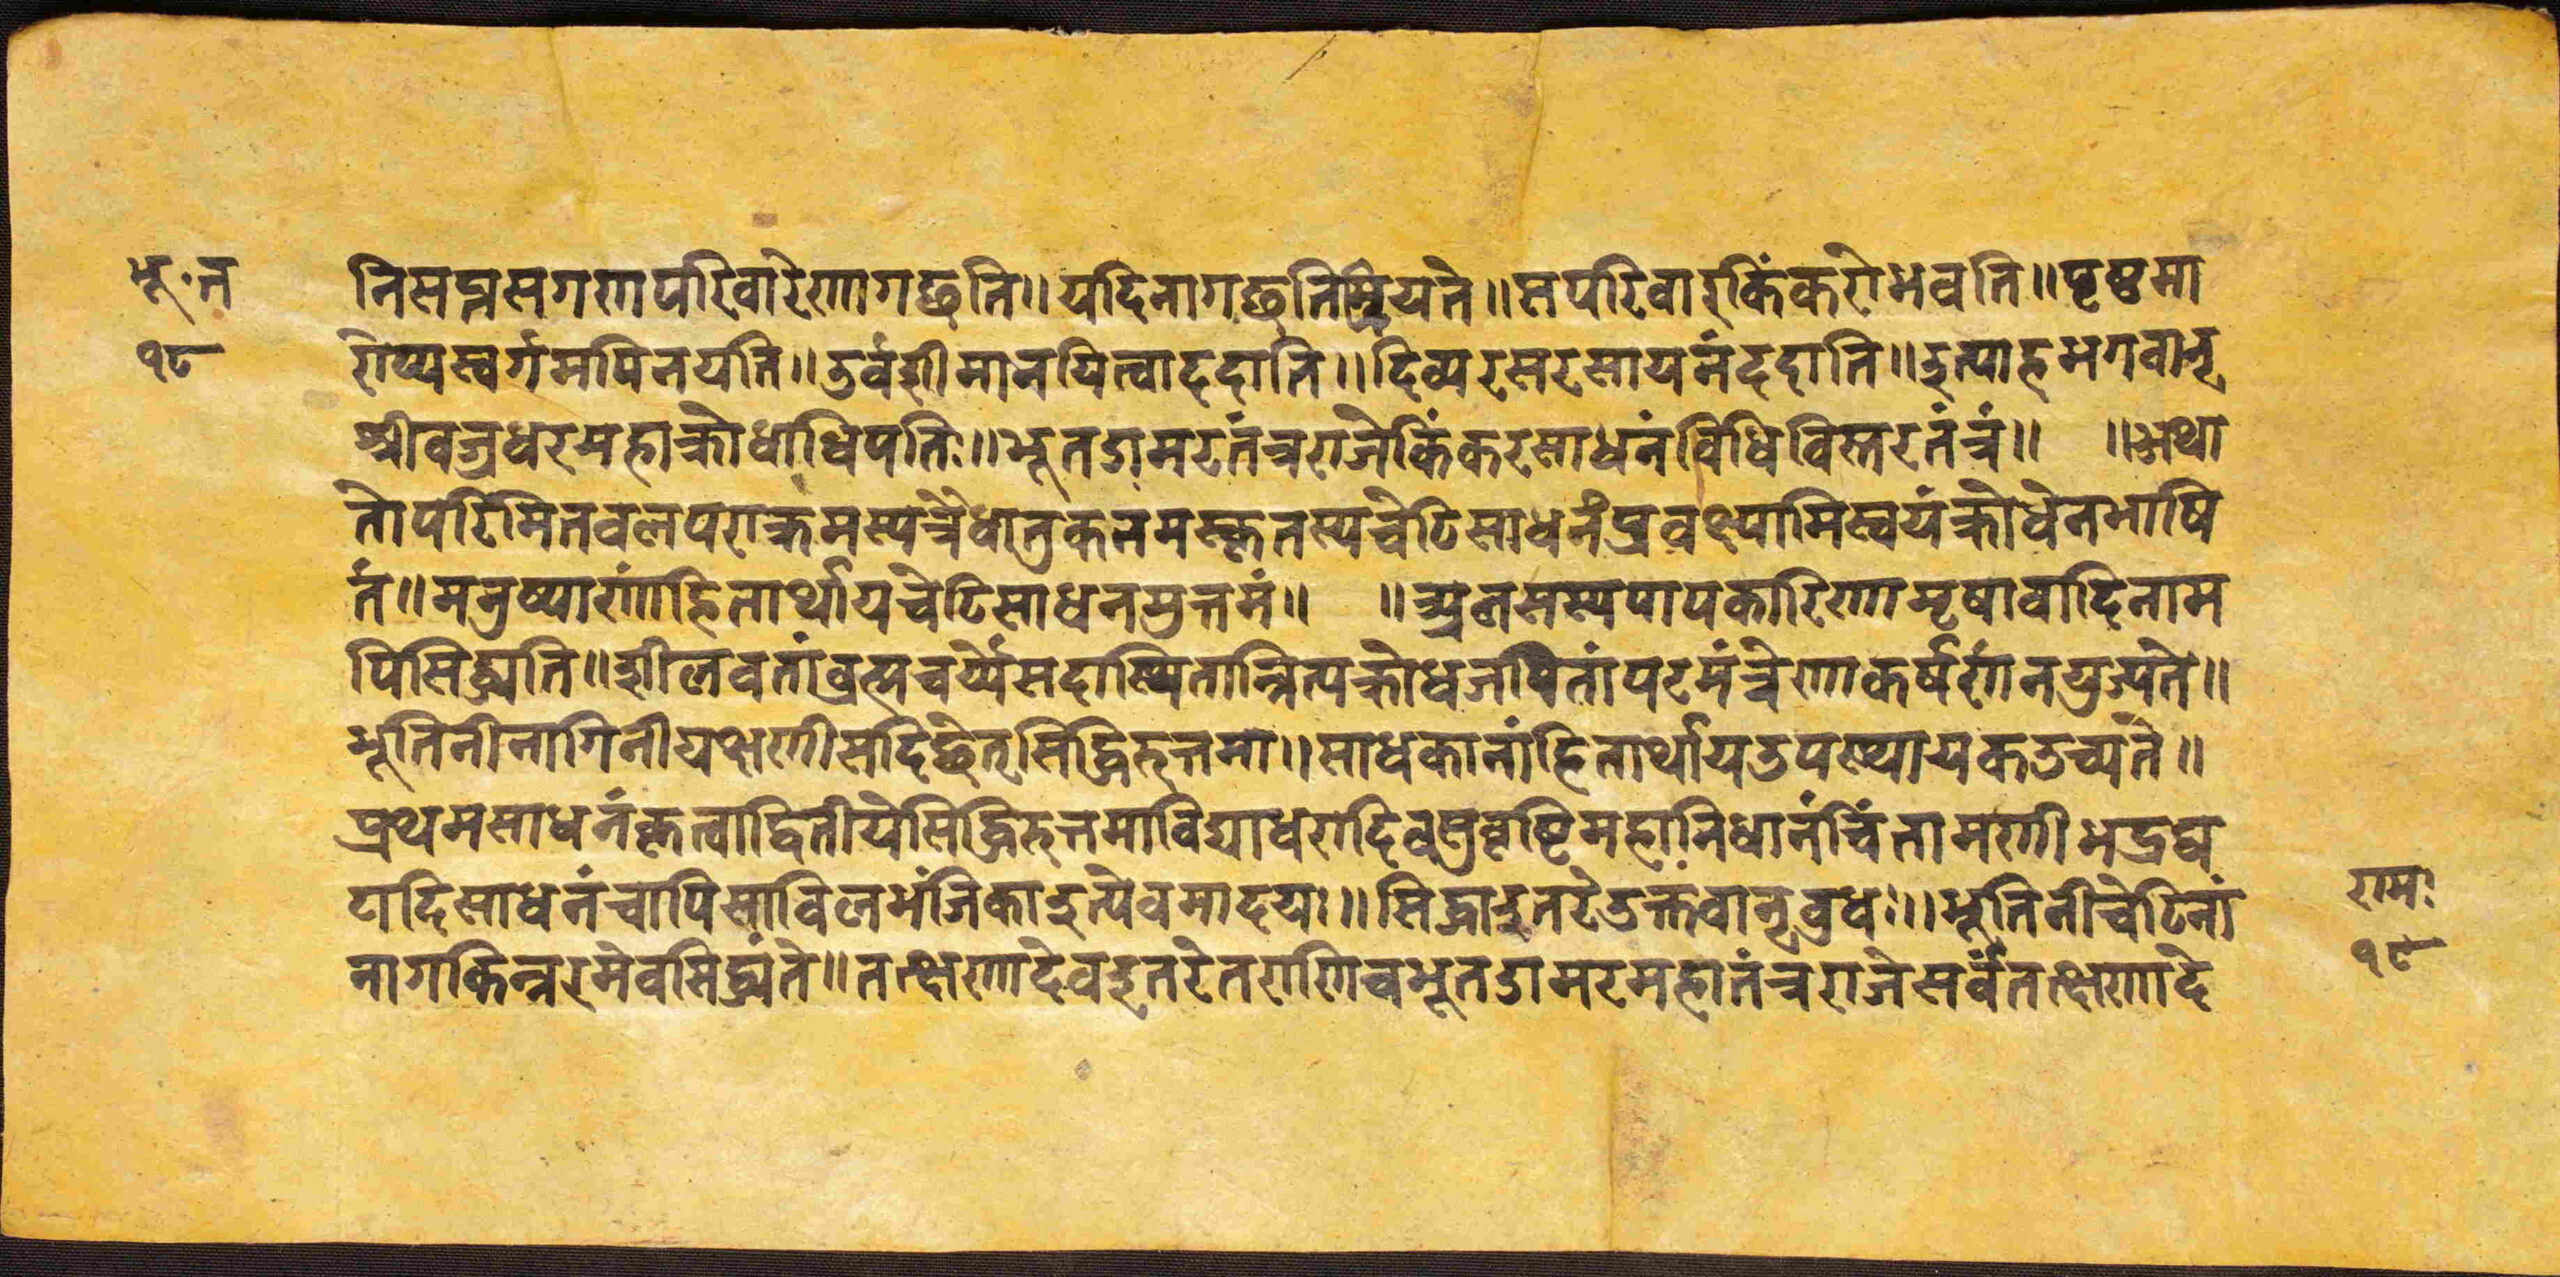 भू॰त
१८
निसप्तसगणपरिवारेणागछति॥यदिनागछतिम्रियते॥सपरिवारकिंकरोभवति॥पृष्ठमा
रोप्यस्वर्गमपिनयति॥उर्वशीमानयित्वाददाति॥दिव्यरसरसायनंददाति॥इत्याहभगवान्
श्रीवज्रधरमहाक्रोधाधिपतिः॥भूतडामरतंत्रराजेकिंकरसाधनंविधिविस्तरतंत्रं॥ ॥अथा
तोपरिमितवलपराक्रमस्यत्रैधातुकनमस्कृतस्यचेटिसाधनंप्रवक्ष्यामिस्वयंक्रोधेनभाषि
तं॥मनुष्याणांहितार्थायचेटिसाधनमुत्तमं॥ ॥अलसस्यपापकारिणामृषावादिनाम
पिसिद्ध्यति॥शीलवतांब्रह्मचर्य्येसदास्थितान्नित्यक्रोधजपितांपरमंत्रेणाकर्षणंनयुज्यते॥
भूतिनीनागिनीयक्षणीसदिछेत्सिद्धिरुत्तमा॥साधकानांहितार्थायउपख्यायकउच्यते॥
प्रथमसाधनंकृत्वाद्वितीयेसिद्धिरुत्तमाविद्याधरादिवसुवृष्टिमहानिधानंचिंतामणीभद्रघ
टादिसाधनंचापिसाविलभंजिकाइत्येवमादयः॥सिद्धाइतरेउक्तंवान्बुधः॥भूतिनीचेटिनां
नागकिन्नरमेवसिद्ध्यंते॥तत्क्षणादेवइतरेतराणिचभूतडामरमहातंत्रराजेसर्वेतत्क्षणादे
रामः
१८